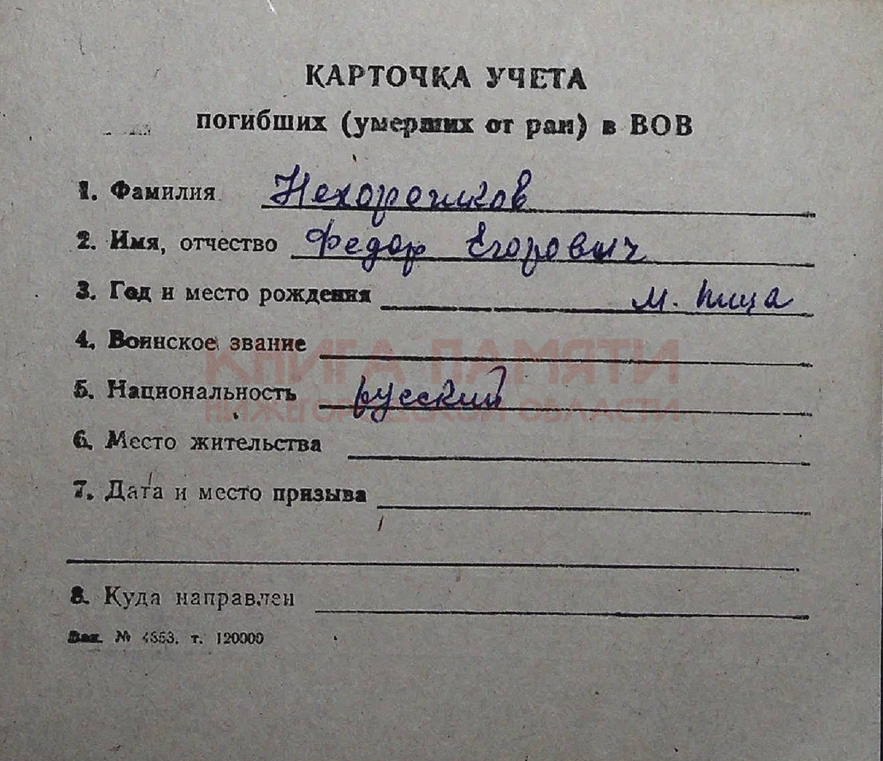 КАРТОЧКА УЧЕТА
погибших (умерших от ран) в ВОВ
1. Фамилия Нехорошков
2. Имя, отчество Федор Егорович
3. Год и место рождения м. Пица
4. Воинское звание
КНИГА ПАМЯТИ
5. Национальность русский
НИЖЕГОРОДСКОЙ ОБЛАСТИ
6. Место жительства
7. Дата и место призыва
8. Куда направлен
Зак. № 4853. т. 120000